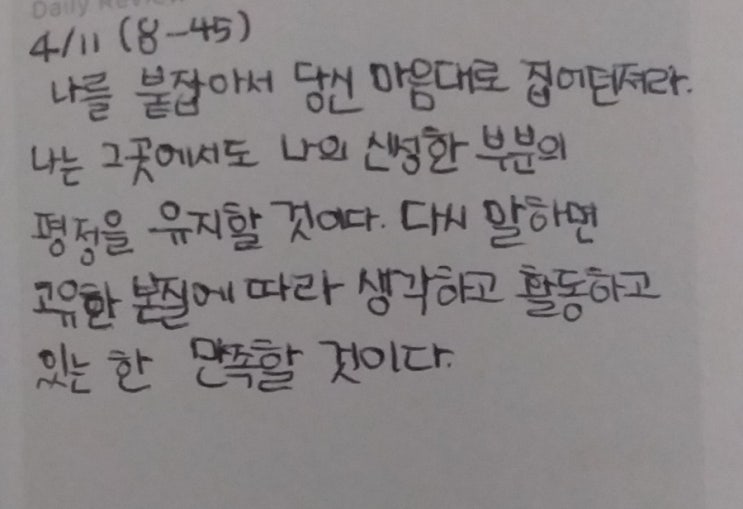 Daily Review
4/11 (8-45)
나를 붙잡아서 당신 마음대로 집어던져라.
나는 그곳에서도 나의 신성한 부분의
평정을 유지할 것이다. 다시 말하면
고유한 본질에 따라 생각하고 활동하고
있는 한 만족할 것이다.